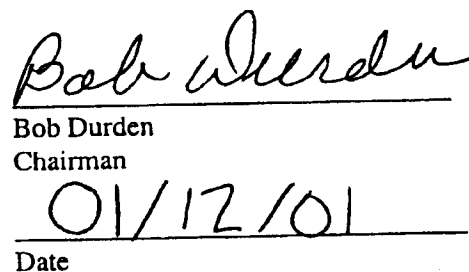 Bob Durden
Bob Durden
Chairman
01/12/01
Date